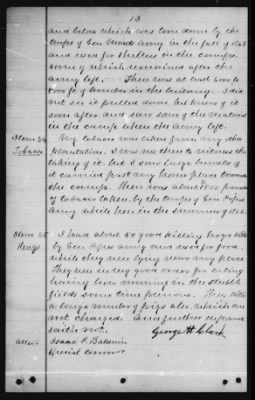 13
and below which was torn down by the
troops of Gen Meade army in the fall of 1863
and used for shelters in the camps
some of which remained after the
army left. There was at least 600 to
700 ft of lumber in the building. I did
not see it pulled down but knew of it
soon after and saw some of the material
in the camps when the army left.
Item 24
Tobacco
My tobacco was taken from my
plantation. I was not there to witness the
taking of it, but I saw large bundles of
it carried past my home place towards
the camps. There was about 800 pounds
of tobacco taken by the troops of Gen Popes
army which been in the summer of 1862.
Item 25
Hogs
I had about 20 good killing hogs killed
by Gen Popes army and used for food,
while they were lying near my place
They were in very good order for eating
having been running in the stubble
fields some time previous. They killed
a large number of pigs also, which are
not charged. And further deponent
saith not.
George H. Clark
Attest
Isaac P. Baldwin
Special Commr